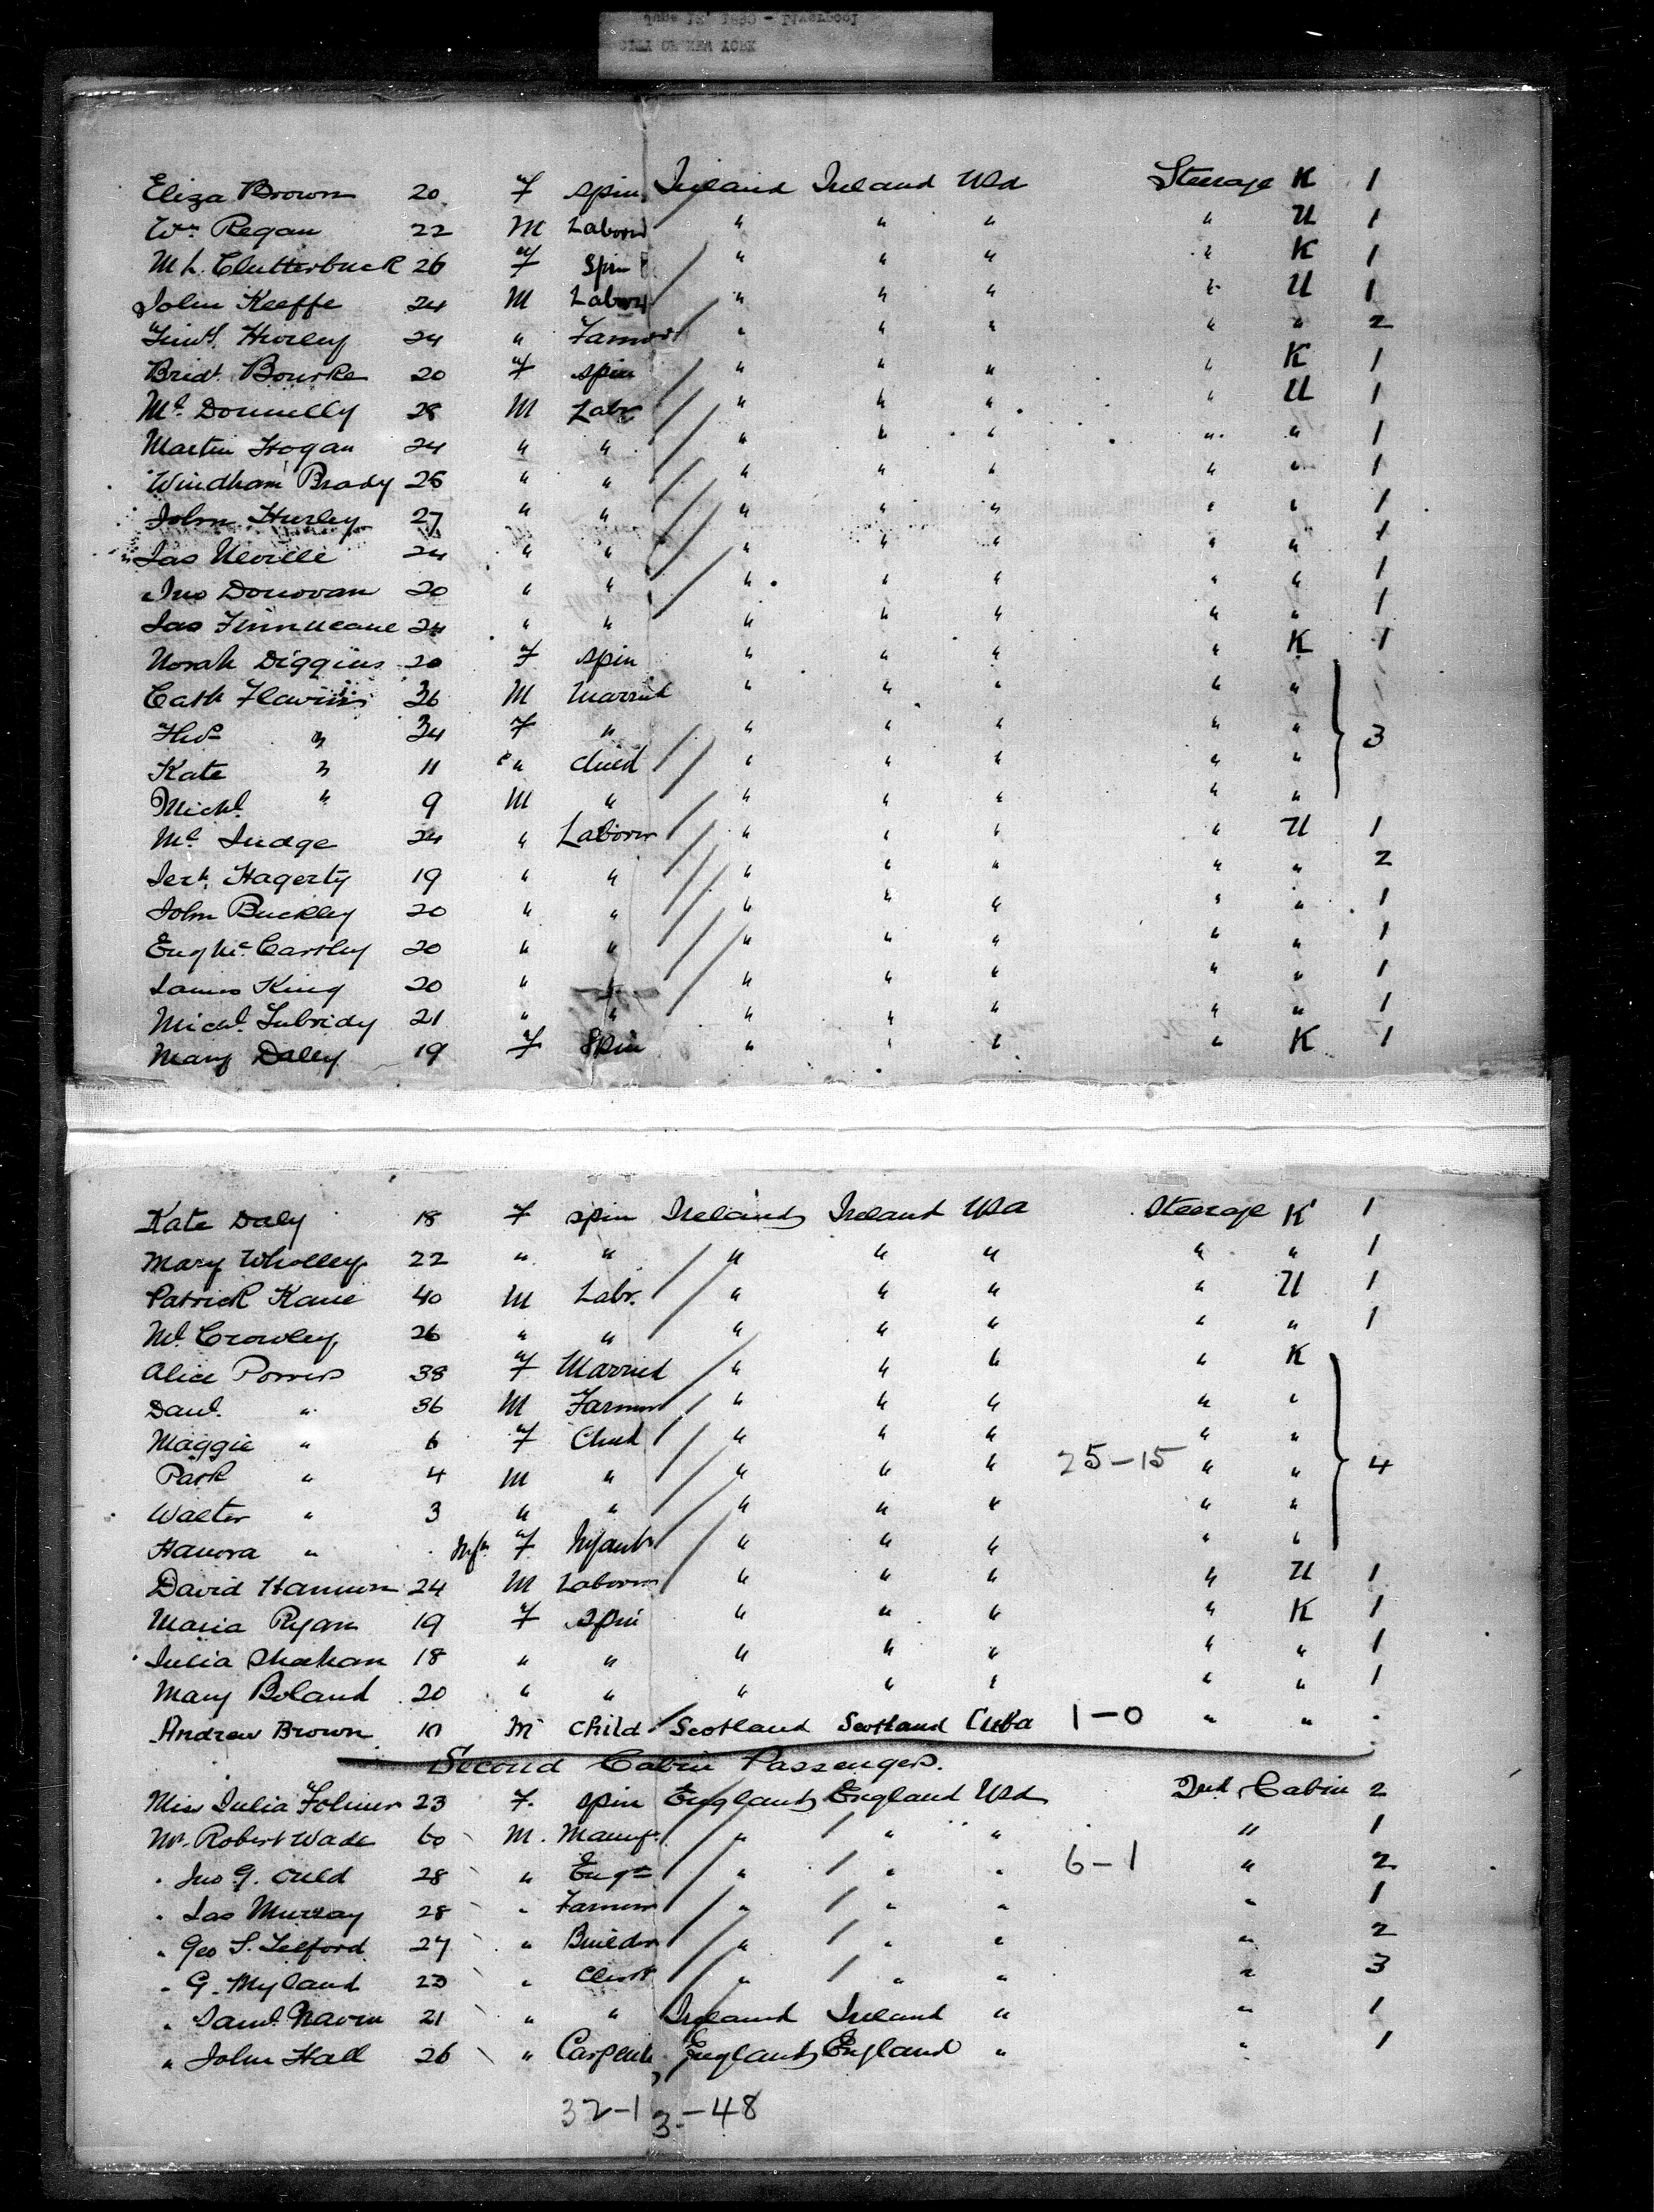 June 12, 1890 - Liverpool
CITY OF NEW YORK
Eliza Brown 20 F spin Ireland Ireland USA Steerage K 1
Wm Regan 22 M Laborer " " " " U 1
M L. Clutterbuck 26 F Spin " " " " K 1
John Keeffe 24 M Labour " " " " U 1
Timy. Hurley 24 " Farmer " " " " " 2
Bridt. Bourke 20 F spin " " " " K 1
Ml. Donnelly 28 M Labr " " " " U 1
Martin Hogan 24 " " " " " " " 1
Windham Brady 26 " " " " " " " 1
John Hurley 27 " " " " " " " 1
Jas Neville 24 " " " " " " " 1
Jno Donovan 20 " " " " " " " 1
Jas Finnucane 24 " " " " " " " 1
Norah Diggins 20 F spin " " " " K 1
Cath Flavin 36 M Married " " " " "
Thos " 34 F " " " " " " 3
Kate " 11 " child " " " " "
Michl. " 9 M " " " " " "
Ml. Judge 24 " Laborer " " " " U 1
Jerh. Hagerty 19 " " " " " " " 2
John Buckley 20 " " " " " " " 1
Eug Mc. Carthy 20 " " " " " " " 1
James King 20 " " " " " " " 1
Michl. Lubridy 21 " " " " " " " 1
Mary Daley 19 F Spin " " " " K 1
Kate Daly 18 F spin Ireland Ireland USA Steerage K 1
Mary Wholley 22 " " " " " " " 1
Patrick Kane 40 M Labr. " " " " U 1
Ml. Crowley 26 " " " " " " " 1
Alice Powers 38 F Married " " " " K
Danl. " 36 M Farmer " " " " "
Maggie " 6 F Child " " " " "
Patk " 4 M " " " " 25-15 " " 4
Walter " 3 " " " " " " "
Hanora " Inft F Infant " " " " "
David Hannon 24 M Laborer " " " " U 1
Maria Ryan 19 F spin " " " " K 1
Julia Shahan 18 " " " " " " " 1
Mary Boland 20 " " " " " " " 1
Andrew Brown 10 M Child Scotland Scotland Cuba 1-0 " "
Second Cabin Passengers.
Miss Julia 23 F. spin England England USA 2nd Cabin 2
Mr. Robert Wade 60 M. Manufr. " " " " 1
" Jno G. Auld 28 " Engr " " " 6-1 " 2
" Jas Murray 28 " Farmer " " " " 1
" Geo S. Telford 27 " Builder " " " " 2
" G. Myland 23 " Clerk " " " " 3
" Saml. 21 " " Ireland Ireland " " 1
" John Hall 26 " Carpentr England England " " 1
32-13-48